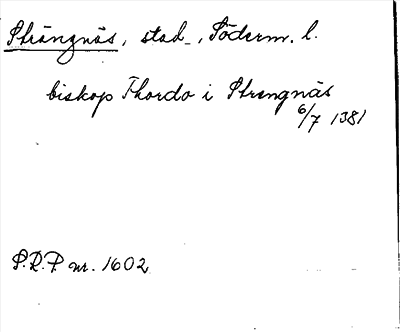 Strängnäs, stad, Söderm. l.
biskop Thordo i Strengnäs
6/7 1381
S.R.P nr. 1602